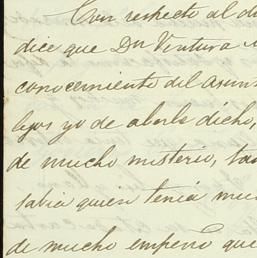 Con respecto al di
dice que Dn Ventura
conocimiento del asun
lejos yo de aberle dicho,
de mucho misterio, ta
sabia quien tenia mu
de mucho empeño que